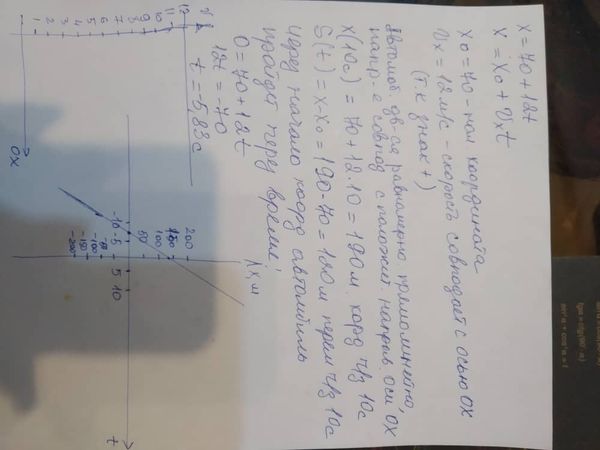 x = 70 + 12t
x = x₀ + Vxt
x₀ = 70 - нач координата
Vx = 12 м/с - скорость совподает с осью OX
(т.к знак +)
Автомоб. дв-ся равномерно прямолинейно,
напр-е совпод с положит. направ. оси OX
x(10с) = 70 + 12 · 10 = 190 м. корд ч/з 10с
S(t) = x - x₀ = 190 - 70 = 120 м перем ч/з 10с
через начало коорд автомобиль
пройдет перед время:
0 = 70 + 12t
12t = -70
t = -5,83с
12
11
10
9
8
7
6
5
4
3
2
1
OX
x, м
200
150
100
50
-50
-100
-150
-200
-10
-5
5
10
t
tgα = ctg(90°-α)
sin²α + cos²α = 1